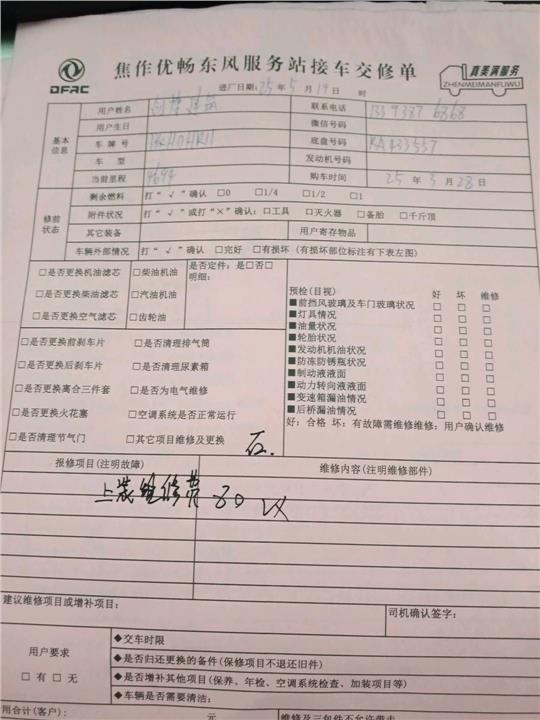 DFAC
焦作优畅东风服务站接车交修单
真美满服务
ZHENMEIMANFUWU
进厂日期:25年5月19日 时
基本信息
用户姓名
联系电话 139 9387 6868
用户生日
微信号码
车牌号
底盘号码 KA433557
车型
发动机号码
当前里程 4694
购车时间 25年3月28日
修前状态
剩余燃料 打“√”确认 □0 □1/4 □1/2 □1
附件状况 打“√”或打“×”确认:□工具 □灭火器 □备胎 □千斤顶
其它装备
用户寄存物品
车辆外部情况 打“√”确认 □完好 □有损坏(有损坏部位标注有下表左图)
□是否更换机油滤芯 □柴油机油
□是否更换柴油滤芯 □汽油机油
□是否更换空气滤芯 □齿轮油
是否定件:是□否□
明细:
□是否更换前刹车片 □是否清理排气筒
□是否更换后刹车片 □是否清理尿素箱
□是否更换离合三件套 □是否为电气维修
□是否更换火花塞 □空调系统是否正常运行
□是否清理节气门 □其它项目维修及更换
预检(目视) 好 坏 维修
■前挡风玻璃及车门玻璃状况 □ □ □
■灯具情况 □ □ □
■油量状况 □ □ □
■轮胎状况 □ □ □
■发动机机油状况 □ □ □
■防冻防锈瓶状况 □ □ □
■制动液液面 □ □ □
■动力转向液液面 □ □ □
■变速箱漏油情况 □ □ □
■后桥漏油情况 □ □ □
好:合格 坏:有故障需维修维修:用户确认维修
报修项目(注明故障)
维修内容(注明维修部件)
上装维修费 80
建议维修项目或增补项目:
司机确认签字:
用户要求
□有 □无
◆交车时限
◆是否归还更换的备件(保修项目不退还旧件)
◆是否增补其他项目(保养、年检、空调系统检查、加装项目等)
◆车辆是否需要清洁:
用合计(客户): 元
维修及三包件不允许带走